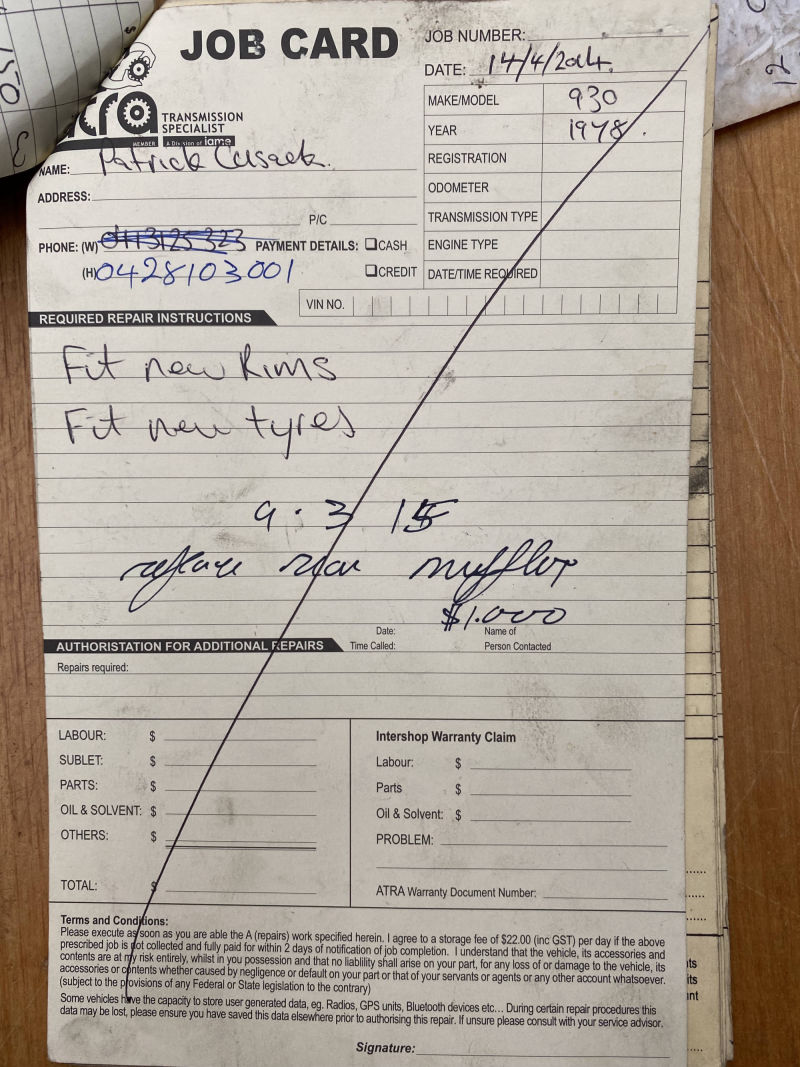 JOB CARD
JOB NUMBER:
DATE: 14/4/2014.
atra TRANSMISSION
SPECIALIST
MEMBER A Division of iame
MAKE/MODEL 930
YEAR 1978.
REGISTRATION
ODOMETER
TRANSMISSION TYPE
ENGINE TYPE
DATE/TIME REQUIRED
NAME: Patrick Cusack.
ADDRESS:
P/C
PHONE: (W) 0413125323 PAYMENT DETAILS: CASH
(H) 0428103001 CREDIT
VIN NO.
REQUIRED REPAIR INSTRUCTIONS
Fit new Rims
Fit new tyres
9 . 3 15
replace rear muffler
$1.000
Date: Name of
AUTHORISTATION FOR ADDITIONAL REPAIRS Time Called: Person Contacted
Repairs required:
LABOUR: $
SUBLET: $
PARTS: $
OIL & SOLVENT: $
OTHERS: $
TOTAL: $
Intershop Warranty Claim
Labour: $
Parts $
Oil & Solvent: $
PROBLEM:
ATRA Warranty Document Number:
Terms and Conditions:
Please execute as soon as you are able the A (repairs) work specified herein. I agree to a storage fee of $22.00 (inc GST) per day if the above
prescribed job is not collected and fully paid for within 2 days of notification of job completion. I understand that the vehicle, its accessories and
contents are at my risk entirely, whilst in you possession and that no liabliility shall arise on your part, for any loss of or damage to the vehicle, its
accessories or contents whether caused by negligence or default on your part or that of your servants or agents or any other account whatsoever.
(subject to the provisions of any Federal or State legislation to the contrary)
Some vehicles have the capacity to store user generated data, eg. Radios, GPS units, Bluetooth devices etc... During certain repair procedures this
data may be lost, please ensure you have saved this data elsewhere prior to authorising this repair. If unsure please consult with your service advisor.
Signature: